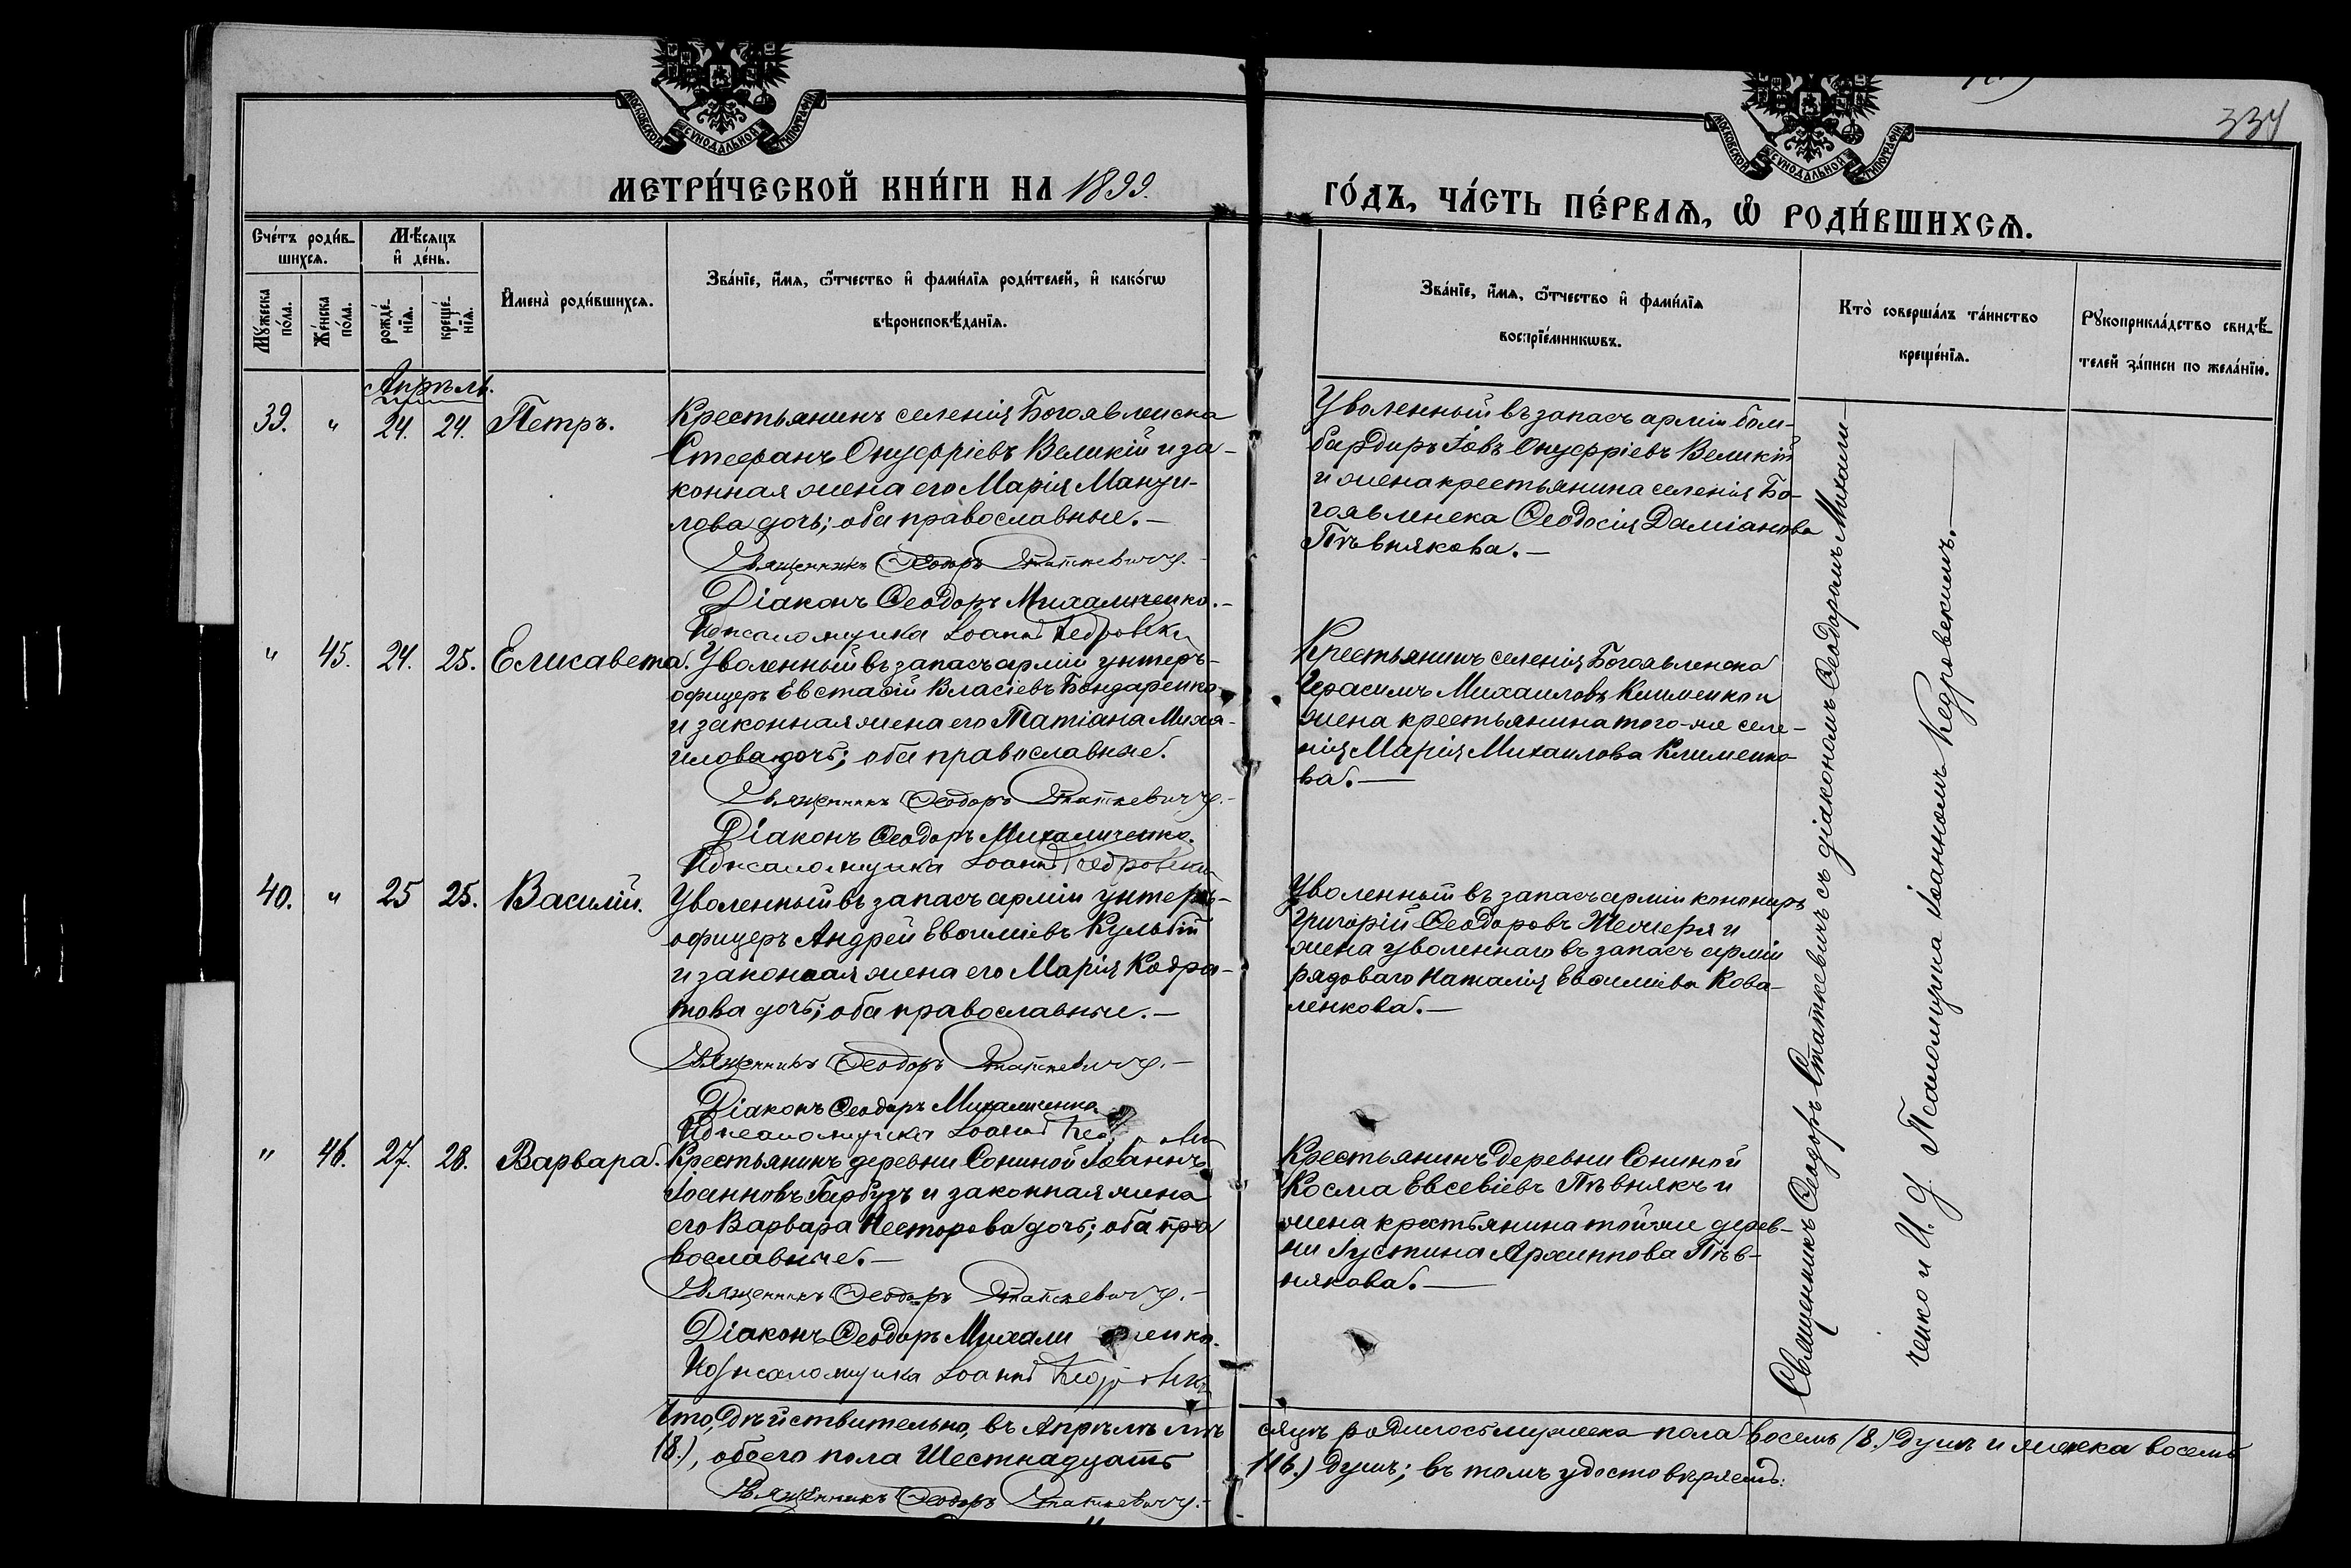 334
МОСКОВСКОЙ СѴНОДАЛЬНОЙ ТИПОГРАФІИ
МОСКОВСКОЙ СѴНОДАЛЬНОЙ ТИПОГРАФІИ
МЕТРИ́ЧЕСКОЙ КНИ́ГИ НА 1899.
ГО́ДЪ, ЧА́СТЬ ПЕ́РВАѦ, Ѽ РОДИ́ВШИХСѦ.
Сче́тъ роди́в-
шихсѧ.
Мѣ́сѧцъ
и҆ де́нь.
Мꙋ́жеска
по́ла.
Же́нска
по́ла.
рожде́-
нїѧ.
креще́-
нїѧ.
И҆мена̀ роди́вшихсѧ.
Зва́нїе, и҆́мѧ, ѻ҆́тчество и҆ фами́лїѧ роди́телей, и҆ како́гѡ
вѣроисповѣ́данїѧ.
Зва́нїе, и҆́мѧ, ѻ҆́тчество и҆ фами́лїѧ
воспрїе́мникѡвъ.
Кто̀ соверша́лъ та́инство
креще́нїѧ.
Рꙋкоприкла́дство свидѣ́-
телей за́писи по жела́нїю.
Апрѣль.
39. " 24. 24. Петръ.
Крестьянинъ селенія Богоявленска
Стефанъ Онуфріевъ Великій и за-
конная жена его Марія Мануи-
лова дочь; оба православные.-
Священникъ Ѳеодоръ Статкевичъ.-
Діаконъ Ѳеодоръ Михаличенко.-
И д псаломщика Іоаннъ Кедровскій
Уволенный въ запасъ арміи бом-
бардиръ Іовъ Онуфріевъ Великій
и жена крестьянина селенія Бо-
гоявленска Ѳеодосія Даміанова
Пѣвнякова.-
" 45. 24. 25. Елисавета.
Уволенный въ запасъ арміи унтеръ-
офицеръ Евстафій Власіевъ Бондаренко
и законная жена его Татіана Миха-
илова дочь; оба православные.
Священникъ Ѳеодоръ Статкевичъ.-
Діаконъ Ѳеодоръ Михаличенко.
И д псаломщика Іоаннъ Кедровскій
Крестьянинъ селенія Богоявленска
Герасимъ Михаиловъ Клименко и
жена крестьянина того-же селе-
нія Марія Михаилова Клименко-
ва.-
40. " 25 25. Василій.
Уволенный въ запасъ арміи унтеръ-
офицеръ Андрей Евѳиміевъ Кульбій
и законная жена его Марія Кодра-
това дочь; оба православные.-
Священникъ Ѳеодоръ Статкевичъ.-
Діаконъ Ѳеодоръ Михаличенко.
И д псаломщика Іоаннъ
Уволенный въ запасъ арміи конониръ
Григорій Ѳеодоровъ и
жена уволеннаго въ запасъ арміи
рядоваго Наталія Евѳиміева Кова-
ленкова.-
" 46. 27. 28. Варвара.
Крестьянинъ деревни Сониной Іоаннъ
Іоанновъ Гарбузъ и законная жена
его Варвара Несторова дочь; оба пра
вославные.-
Священникъ Ѳеодоръ Статкевичъ.-
Діаконъ Ѳеодоръ Михаличенко.
И д псаломщика Іоаннъ Кедровскій
Крестьянинъ деревни Сониной
Косма Евсевіевъ Пѣвнякъ и
жена крестьянина той-же дерев-
ни Іустина Архиппова Пѣв-
някова.-
Священникъ Ѳеодоръ Статкевичъ съ діакономъ Ѳеодоромъ Михали-
ченко и И. д Псаломщика Іоанномъ Кедровскимъ.-
Что, дѣйствительно, въ Апрѣлѣ мѣ
сяцѣ родилось мужеска пола восемь (8.) душъ и женска восемь
(8.), обоего пола Шестнадцать
(16.) душъ; въ томъ удостовѣряемъ:
Священникъ Ѳеодоръ Статкевичъ.-